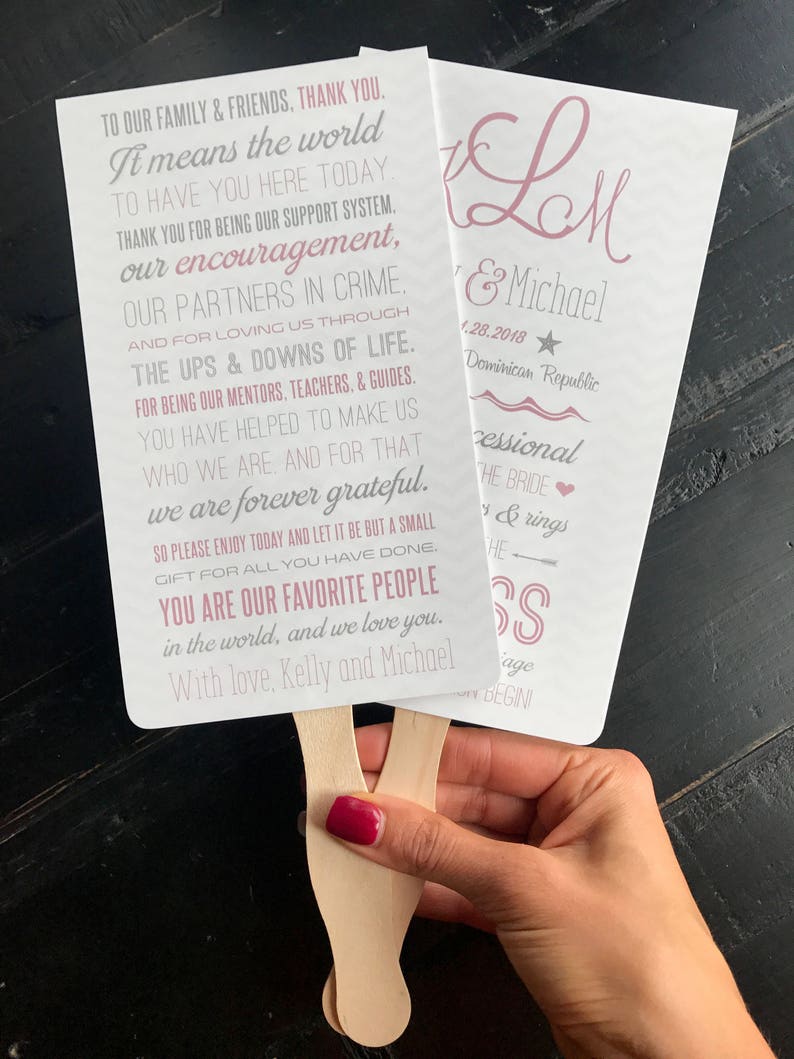 TO OUR FAMILY & FRIENDS, THANK YOU.
It means the world
TO HAVE YOU HERE TODAY.
THANK YOU FOR BEING OUR SUPPORT SYSTEM,
our encouragement,
OUR PARTNERS IN CRIME,
AND FOR LOVING US THROUGH
THE UPS & DOWNS OF LIFE.
FOR BEING OUR MENTORS, TEACHERS, & GUIDES.
YOU HAVE HELPED TO MAKE US
WHO WE ARE, AND FOR THAT
we are forever grateful.
SO PLEASE ENJOY TODAY AND LET IT BE BUT A SMALL
GIFT FOR ALL YOU HAVE DONE.
YOU ARE OUR FAVORITE PEOPLE
in the world, and we love you.
With love, Kelly and Michael
KLM
y & Michael
1.28.2018
Dominican Republic
cessional
THE BRIDE
s & rings
THE
SS
iage
ION BEGIN!